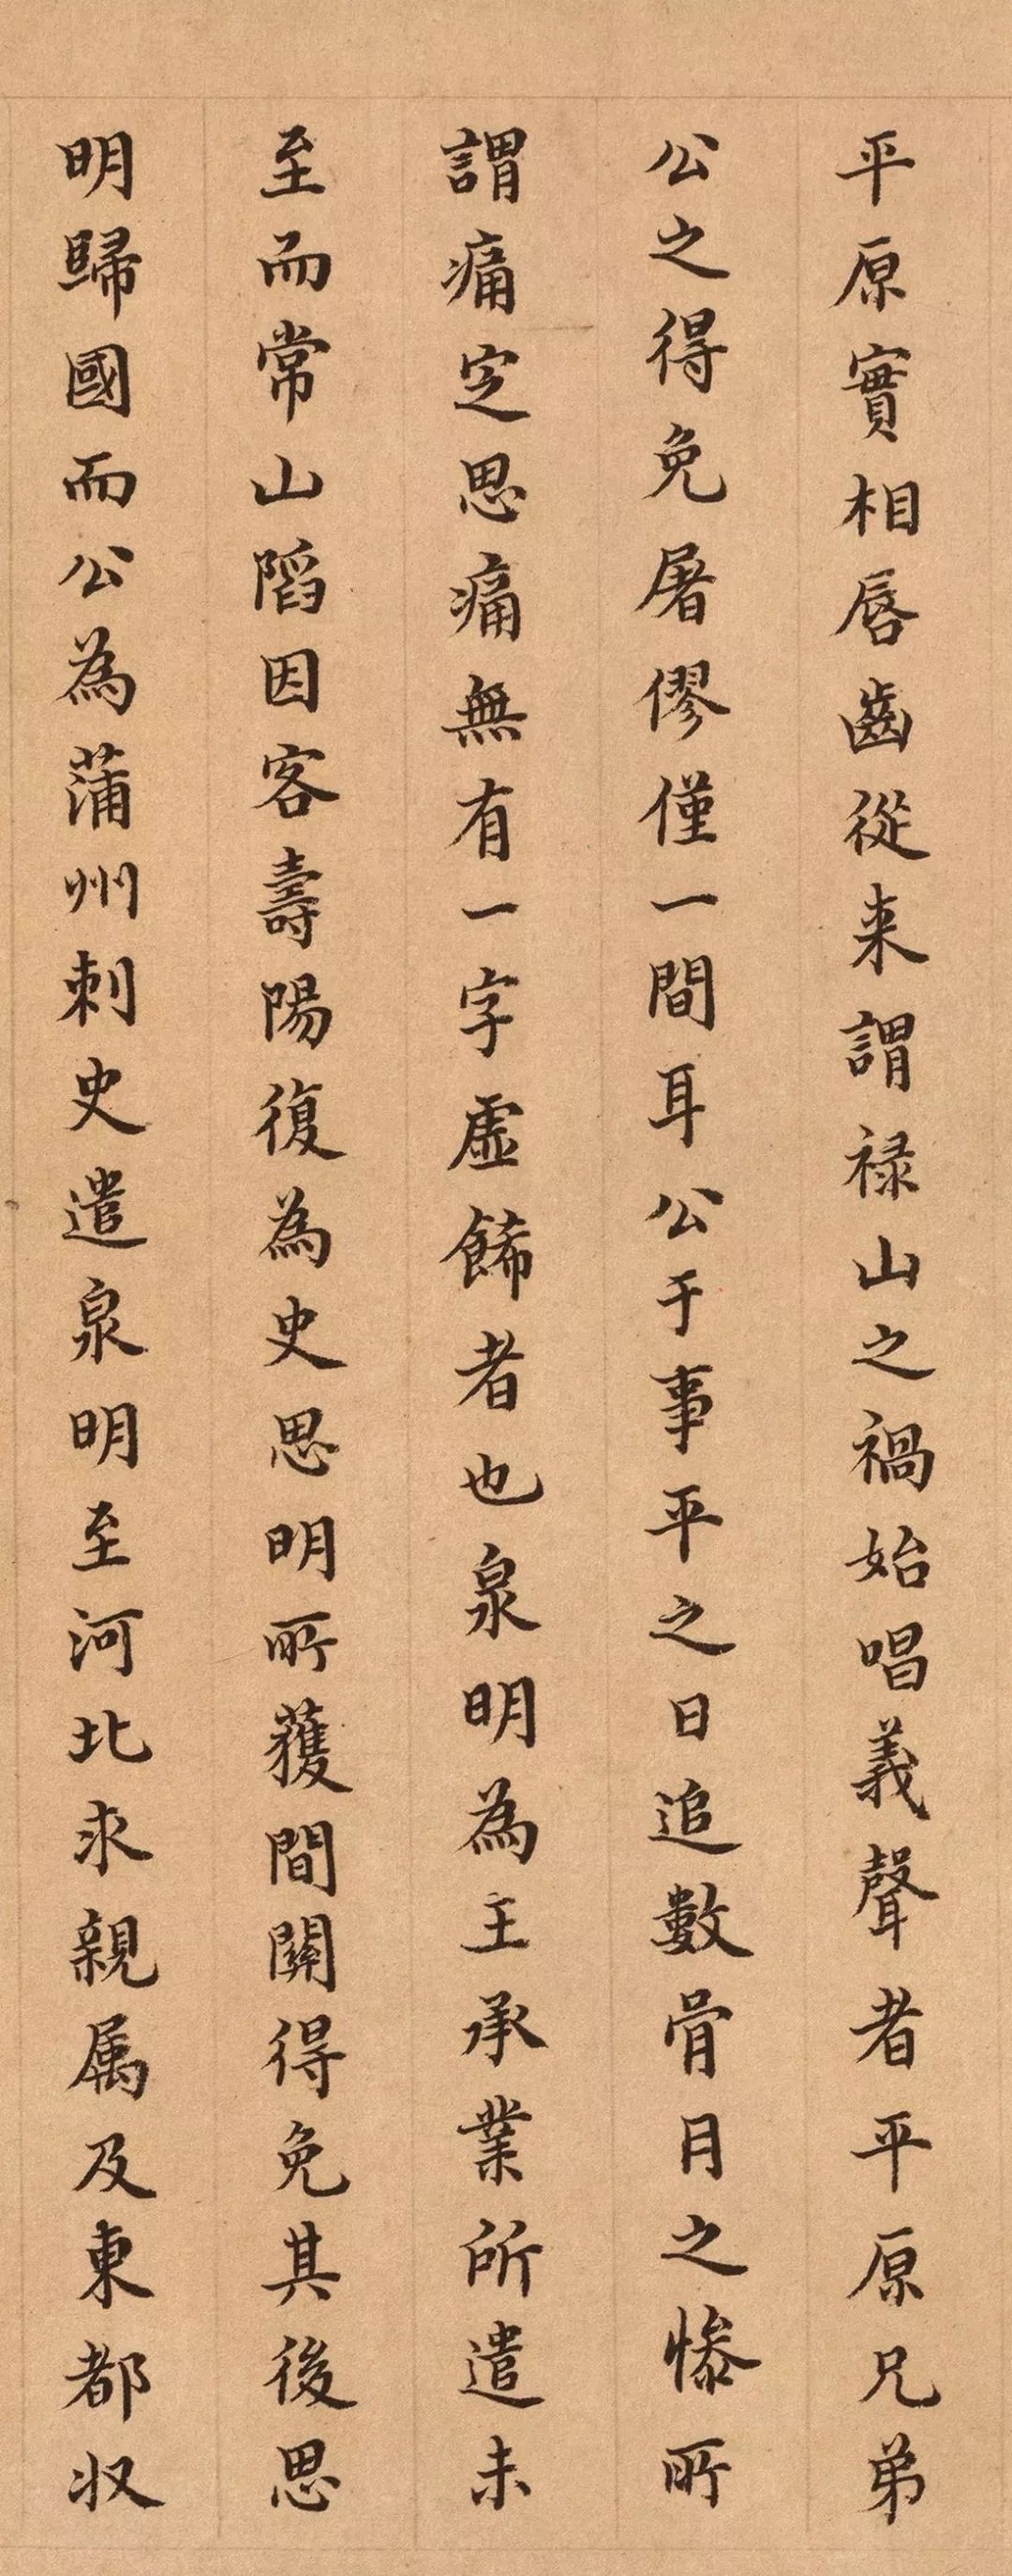 平原實相唇齒從来謂禄山之禍始唱義聲者平原兄弟
公之得免屠僇僅一間耳公于事平之日追數骨月之慘所
謂痛定思痛無有一字虚餙者也泉明為王承業所遣未
至而常山䧟因客壽陽復為史思明所獲間關得免其後思
明歸國而公為蒲州刺史遣泉明至河北求親属及東都收